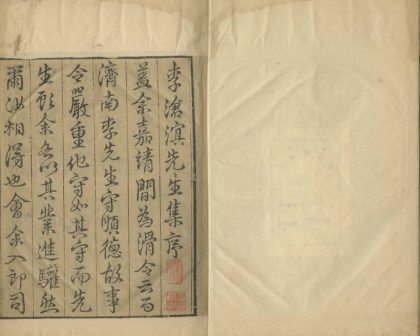 李滄溟先生集序
蓋余嘉靖間為滑令云而
濟南李先生守順德故事
令嚴重他守如其守而先
生顧余各以其業進驩然
爾汝相得也會余入郎司